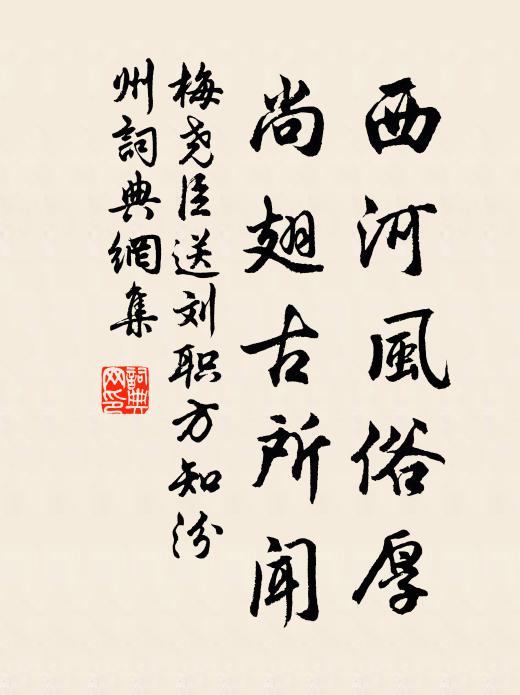 西河風俗厚
尚翅古所聞
梅尧臣送刘职方知汾
州詞典網集
詞典
网印